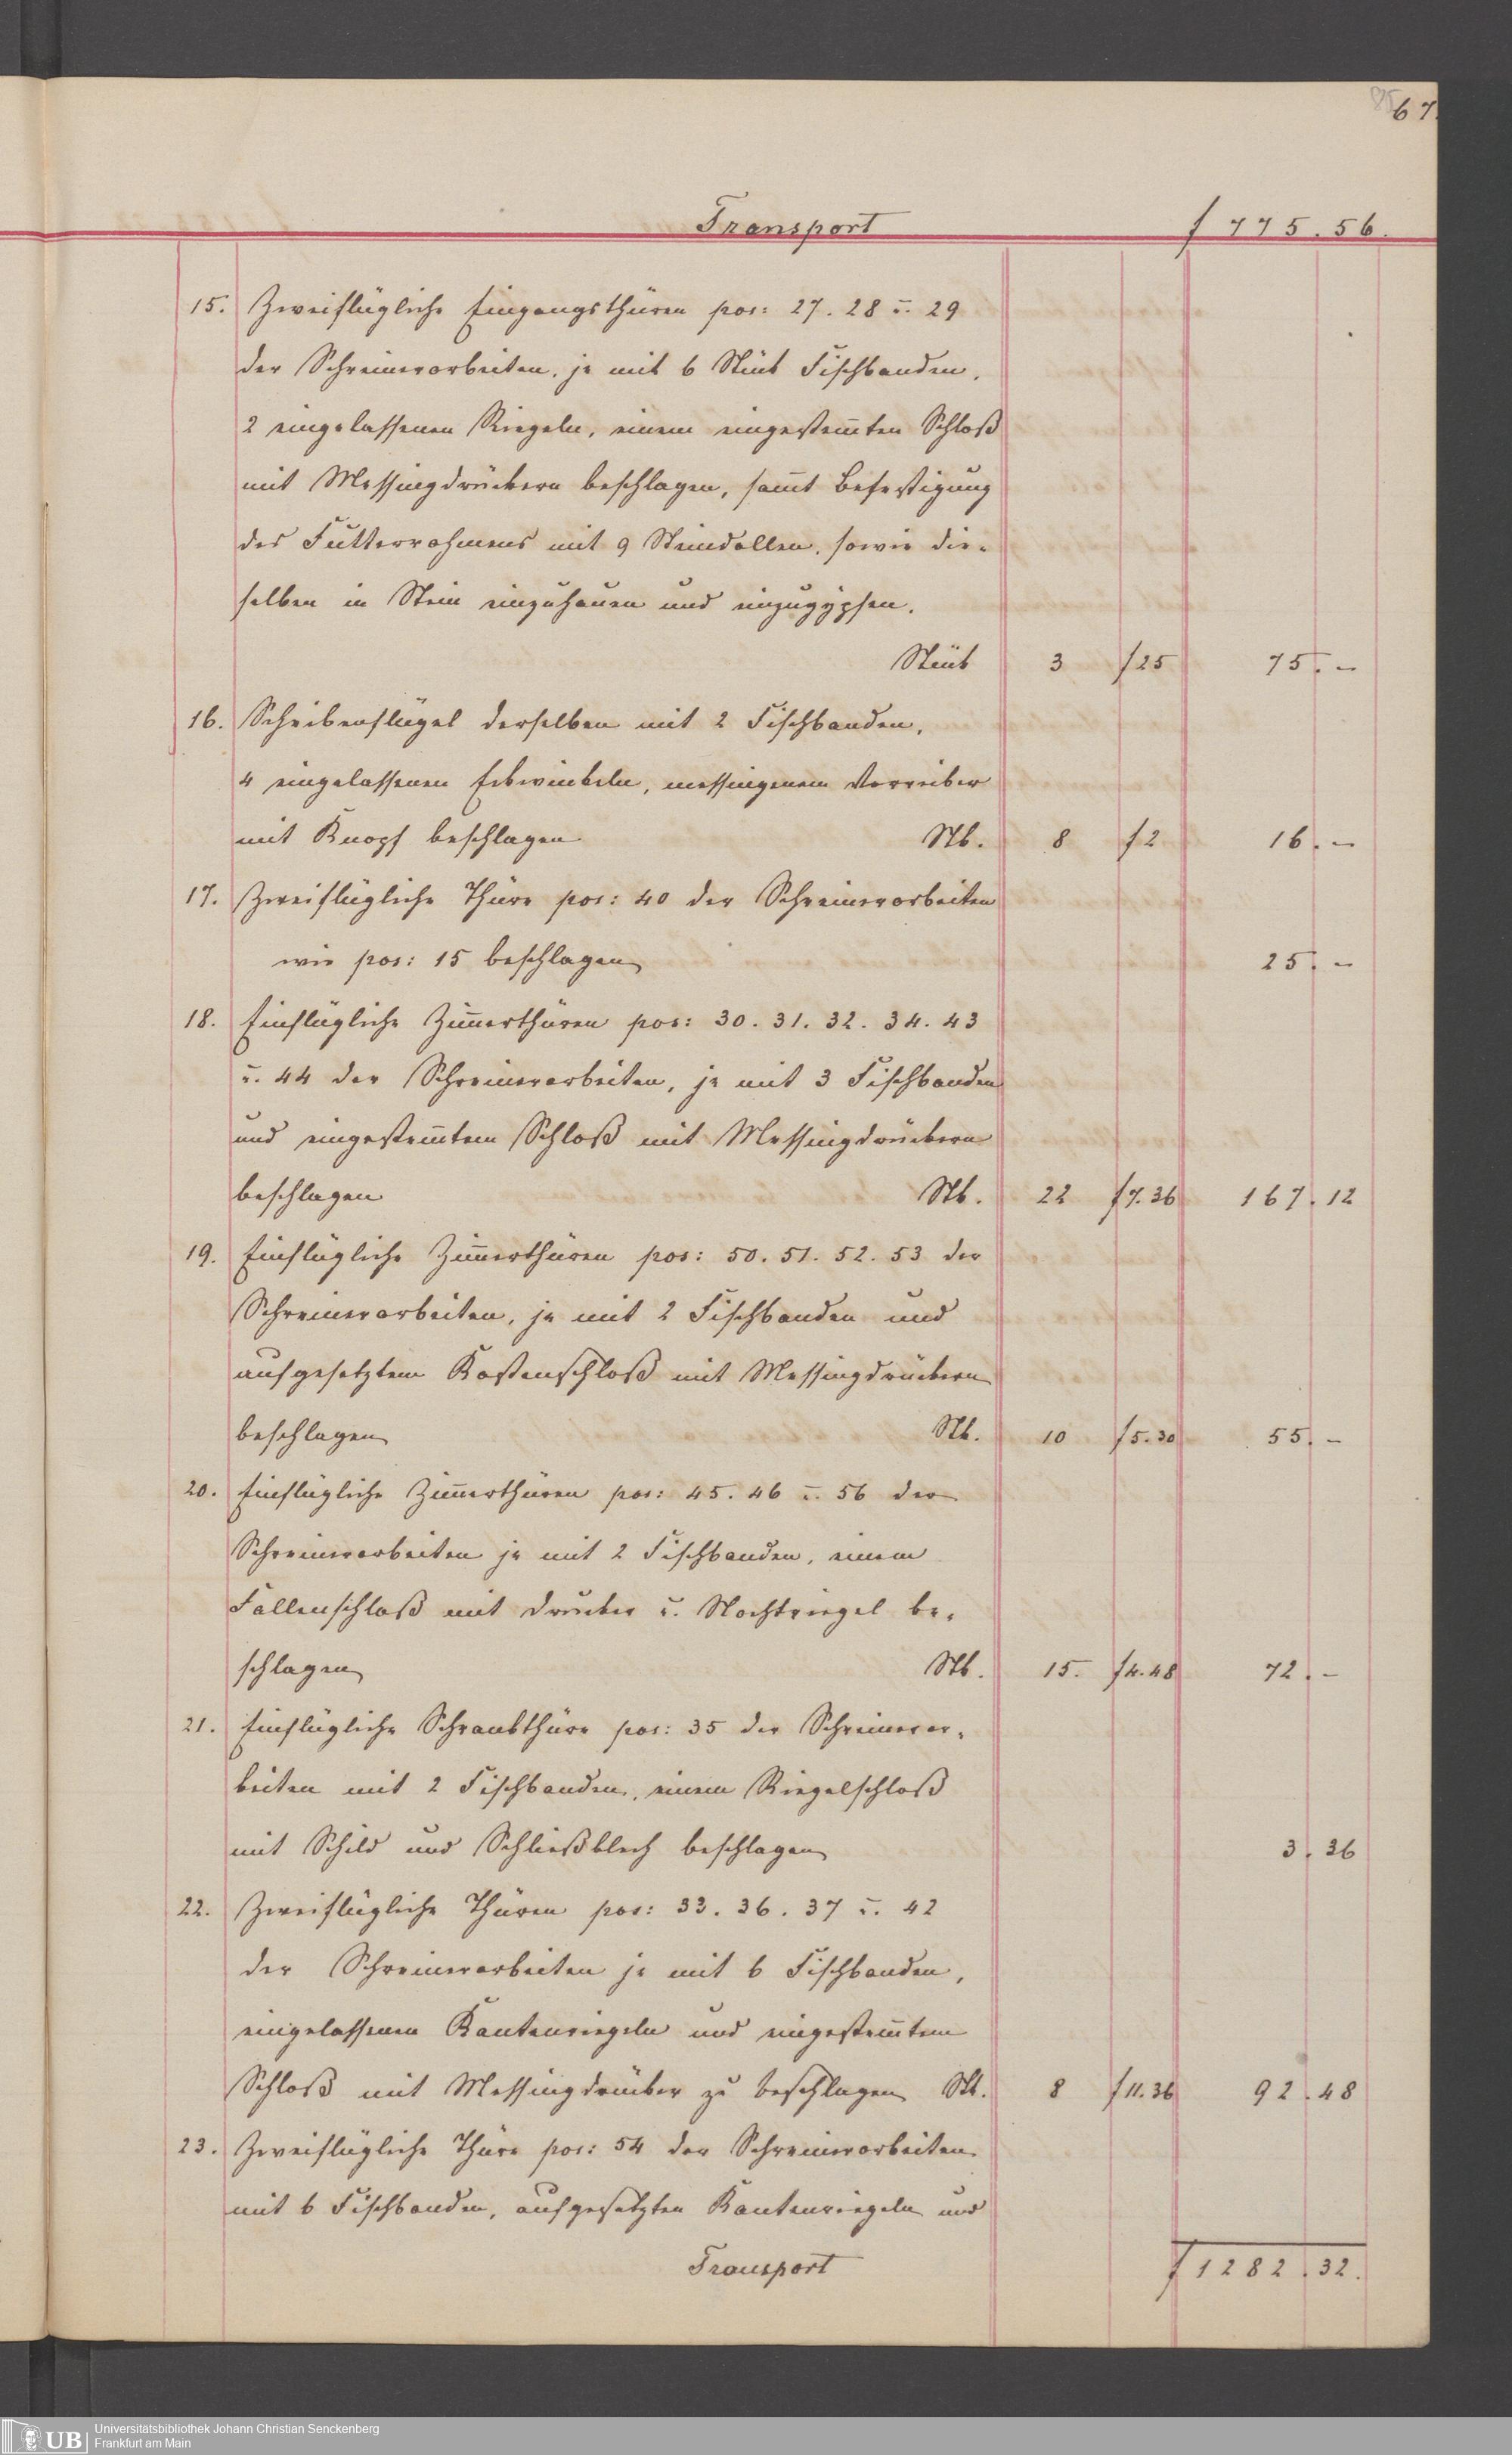 67.
Transport f 775.56.
15. Zweiflügliche Eingangsthüren pos: 27. 28 u. 29
der Schreinerarbeiten, je mit 6 Stück Fischbanden,
2 eingelassenen Riegeln, einem eingestem̄ten Schloß
mit Messingdrückern beschlagen, sam̄t Befestigung
des Futterrahmens mit 9 Steindollen, sowie die-
selben in Stein einzuhauen und einzugypsen.
Stück 3 f 25 75. –
16. Scheibenflügel derselben mit 2 Fischbanden,
4 eingelassenen Eckwinkeln, messingenem Vorreiber
mit Knopf beschlagen Stk. 8 f 2 16. –
17. Zweiflügliche Thüre pos: 40 der Schreinerarbeiten
wie pos: 15 beschlagen 25. –
18. Einflügliche Zim̄erthüren pos: 30. 31. 32. 34. 43
u. 44 der Schreinerarbeiten, je mit 3 Fischbanden
und eingestem̄tem Schloß mit Messingdrückern
beschlagen Stk. 22 f 7.36 167.12
19. Einflügliche Zim̄erthüren pos: 50. 51. 52. 53 der
Schreinerarbeiten, je mit 2 Fischbanden und
aufgesetztem Kastenschloß mit Messingdrückern
beschlagen Stk. 10 f 5.30 55. –
20. Einflügliche Zim̄erthüren pos: 45. 46 u. 56 der
Schreinerarbeiten je mit 2 Fischbanden, einem
Fallenschloß mit Drücker u. Nachtriegel be-
schlagen Stk. 15. f 4.48 72. –
21. Einflügliche Schrankthüre pos: 35 der Schreinerar-
beiten mit 2 Fischbanden, einem Riegelschloß
mit Schild und Schließblech beschlagen 3.36
22. Zweiflügliche Thüren pos: 33. 36. 37 u. 42
der Schreinerarbeiten je mit 6 Fischbanden,
eingelassenen Kantenriegeln und eingestem̄tem
Schloß mit Messingdrücker zu beschlagen Stk. 8 f 11.36 92.48
23. Zweiflügliche Thüre pos: 54 der Schreinerarbeiten
mit 6 Fischbanden, aufgesetzten Kantenriegeln und
Transport f 1282.32.
UB Universitätsbibliothek Johann Christian Senckenberg
Frankfurt am Main